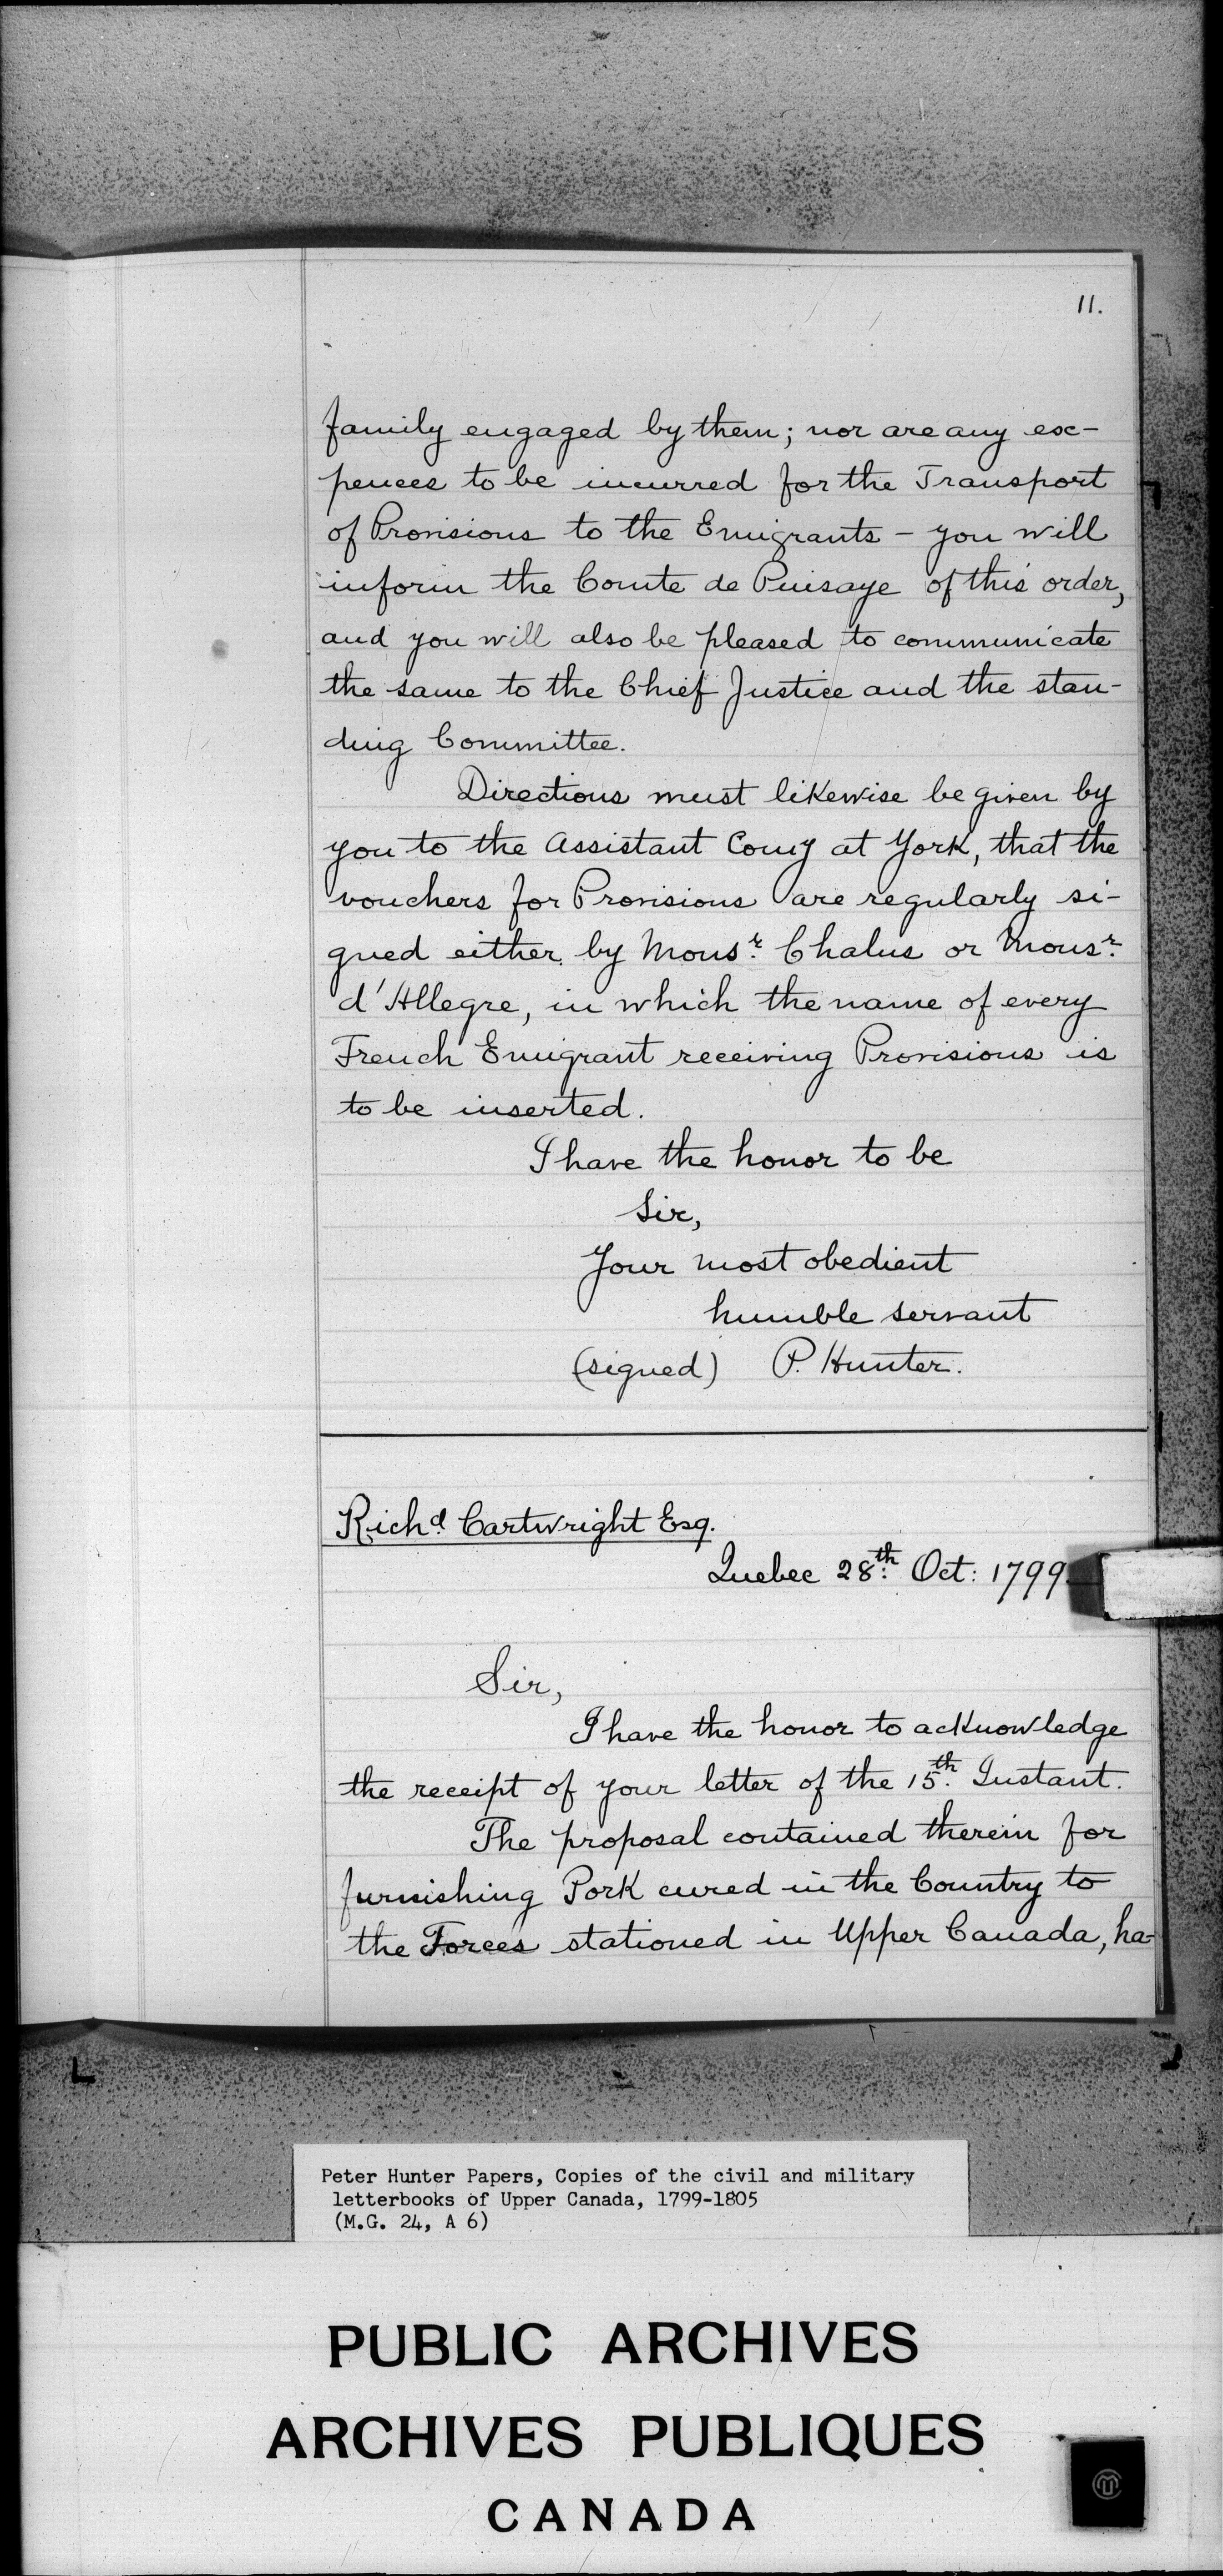 11.
family engaged by them; nor are any ex-
pences to be incurred for the Transport
of Provisions to the Emigrants - you will
inform the Comte de Puisaye of this order,
and you will also be pleased to communicate
the same to the Chief Justice and the stan-
ding Committee.
Directions must likewise be given by
you to the Assistant Comy at York, that the
vouchers for Provisions are regularly si-
gned either by Monsr. Chalus or Monsr.
d'Allegre, in which the name of every
French Emigrant receiving Provisions is
to be inserted.
I have the honor to be
Sir,
Your most obedient
humble servant
(signed) P. Hunter.
Richd. Cartwright Esq.
Quebec 28th. Oct: 1799.
Sir,
I have the honor to acknowledge
the receipt of your letter of the 15th. Instant.
The proposal contained therein for
furnishing Pork cured in the Country to
the Forces stationed in Upper Canada, ha-
Peter Hunter Papers, Copies of the civil and military
letterbooks of Upper Canada, 1799-1805
(M.G. 24, A 6)
PUBLIC ARCHIVES
ARCHIVES PUBLIQUES
CANADA